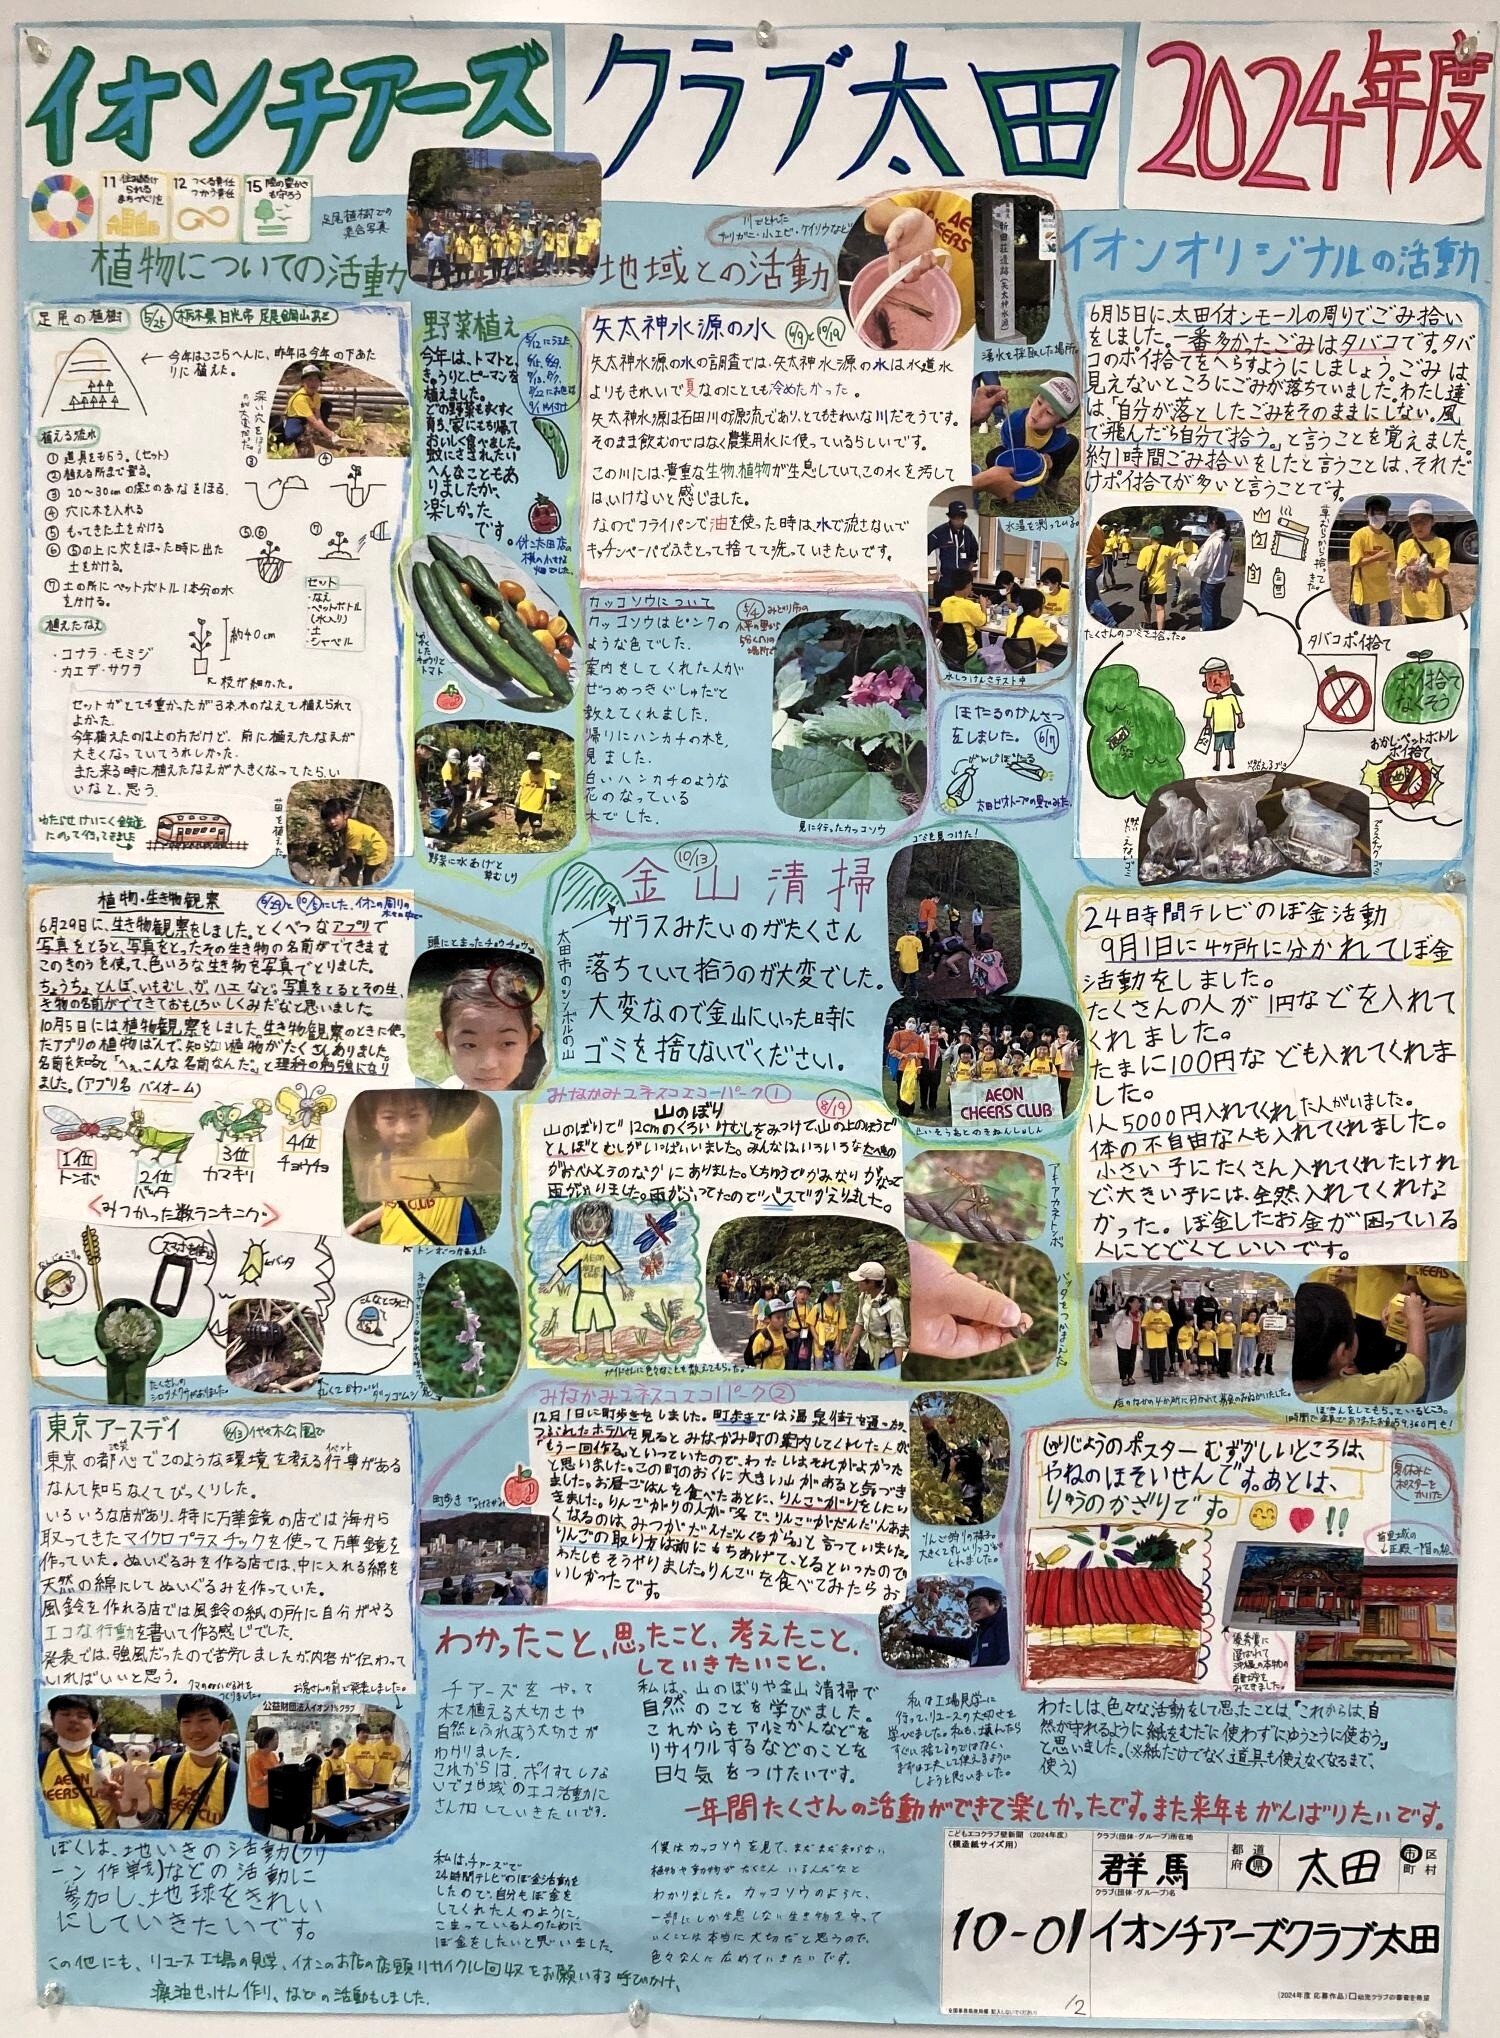 イオンチアーズ クラブ太田 2024年度
11 住み続けられるまちづくりを
12 つくる責任 つかう責任
15 陸の豊かさも守ろう
足尾植樹での
集合写真
植物についての活動
足尾の植樹 5/25 栃木県日光市 足尾銅山あと
← 今年はここらへんに、昨年は今年の下あた
りに植えた。
植える流れ
① 道具をもらう。(セット)
② 植える所まで登る。
③ 20〜30cmの深さのあなをほる。
④ 穴に木を入れる
⑤ もってきた土をかける
⑥ ⑤の上に穴をほった時に出た
土をかける。
⑦ 土の所にペットボトル1本分の水
をかける。
③ ④
⑤⑥ ⑦
セット
・なえ
・ペットボトル
(水入り)
・土
・シャベル
植えたなえ
・コナラ・モミジ
・カエデ・サクラ
約40cm
枝が細かった。
セットがとても重かったが3本木のなえて植えられて
よかった。
今年植えたのは上の方だけど、前に植えたなえが
大きくなっていてうれしかった。
また来る時に植えたなえが大きくなってたらい
いなと、思う。
わたらせけいこく鉄道
にのって行ってきました
苗を植えた。
野菜植え
今年は、トマトと、
きゅうりと、ピーマンを
植えました。
どの野菜もすくすく
育ち、家にもち帰て
おいしく食べました。
蚊にさされたい
へんなこともあ
りましたが、
楽しかった
です。
野菜に水あげと
草むしり
地域との活動
川でとれた
ザリガニ・小エビ・ケイソウなど
矢太神水源の水 6/9と10/19
矢太神水源の水の調査では、矢太神水源の水は水道水
よりもきれいで夏なのにとても冷めたかった。
矢太神水源は石田川の源流であり、とてもきれいな川だそうです。
そのまま飲むのではなく農業用水に使っているらしいです。
この川には、貴重な生物、植物が生息していて、この水を汚して
は、いけないと感じました。
なのでフライパンで油を使った時は、水で流さないで
キッチンペーパーでふきとって捨てて洗っていきたいです。
新田荘遺跡(矢太神水源)
湧水を採取した場所。
水温を測っている。
水しつけんさテスト中
カッコソウについて
カッコソウはピンクの
ような色でした。
案内をしてくれた人が
ぜつめつきぐしゅだと
教えてくれました。
帰りにハンカチの木を、
見ました。
白いハンカチのような
花のなっている
木でした。
見に行ったカッコソウ
ほたるのかんさつ
をしました。 6/7
げんじぼたる
太田ビオトープの里でみた。
イオンオリジナルの活動
6月15日に、太田イオンモールの周りでごみ拾い
をしました。一番多かたごみはタバコです。タバ
コのポイ捨てをへらすようにしましょう。ごみは
見えないところにごみが落ちていました。わたし達
は、「自分が落としたごみをそのままにしない。風
で飛んだら自分で拾う。」と言うことを覚えました。
約1時間ごみ拾いをしたと言うことは、それだ
けポイ捨てが多いと言うことです。
たくさんのゴミを拾った。
草むらから拾ってきた。
タバコポイ捨て
ポイ捨て
なくそう
おかし・ペットボトル
ポイ捨て
燃えるゴミ
燃えないゴミ
プラスチックゴミ
植物・生き物観察
6月29日に、生き物観察をしました。とくべつなアプリで
写真をとると、写真をとったその生き物の名前がでてきます。
このきのうを使って、色いろな生き物を写真でとりました。
ちょうちょ、とんぼ、いもむし、が、ハエなど。写真をとるとその生
き物の名前がでてきておもしろいしくみだなと思いました。
10月5日には植物観察をしました。生き物観察のときに使っ
たアプリの植物ばんで、知らない植物がたくさんありました。
名前を知ると「へぇ、こんな名前なんだ。」と理科の勉強になり
ました。(アプリ名 バイオーム)
1位
トンボ
2位
バッタ
3位
カマキリ
4位
チョウチョ
<みつかった数ランキング>
頭にとまったチョウチョ
トンボつかまえた
バッタ
たくさんの
シロツメクサがありました。
丸くてかわいい
ダンゴムシ
金山清掃 10/13
太田市のシンボルの山
ガラスみたいのがたくさん
落ちていて拾うのが大変でした。
大変なので金山にいった時に
ゴミを捨てないでください。
ゴミを見つけた!
AEON
CHEERS CLUB
せいそうあとのきねんしゃしん
みなかみユネスコエコーパーク①
山のぼり 8/19
山のぼりで12cmのくろいけむしをみつけて、山の上のほうで
とんぼとむしがいっぱいいました。みんなはいろいろなたべもの
がおべんとうのなかにありました。とちゅうでかみなりがなって
雨がふりました。雨がふってたのでバスでかえりました。
AEON
CLUB
ガイドさんに色々なことを教えてもらった。
アキアカネトンボ
バッタをつかまえた
24時間テレビのぼ金活動
9月1日に4ヶ所に分かれてぼ金
活動をしました。
たくさんの人が1円などを入れて
くれました。
たまに100円なども入れてくれま
した。
1人5000円入れてくれた人がいました。
体の不自由な人も入れてくれました。
小さい子にたくさん入れてくれたけれ
ど、大きい子には、全然、入れてくれな
かった。ぼ金したお金が困っている
人にとどくといいです。
ぼきんをしてもらっているところ。
東京アースデイ 4/13 代々木公園で
東京の都心でこのような環境を考える行事がある
なんて知らなくてびっくりした。
いろいろな店があり、特に万華鏡の店では海から
取ってきたマイクロプラスチックを使って万華鏡を
作っていた。ぬいぐるみを作る店では、中に入れる綿を
天然の綿にしてぬいぐるみを作っていた。
風鈴を作れる店では風鈴の紙の所に自分がやる
エコな行動を書いて作る感じでした。
発表では、強風だったので苦労しましたが内容が伝わって
いればいいと思う。
クマのぬいぐるみを
つくりました。
お客さんの前で発表しました。
公益財団法人イオンワンパークラブ
AEON
CHEERS CLUB
みなかみユネスコエコパーク②
12月1日に町歩きをしました。町歩きでは温泉街を通ったり、
つぶれたホテルを見るとみなかみ町の案内してくれた人が
「もう一回作る。」といっていたので、わたしはそれがよかった
と思いました。この町のおくに大きい山があると気づき
ました。お昼ごはんを食べたあとに、りんごがりをしにい
きました。りんごがりの人が「冬で、りんごがだんだんあま
くなるのは、みつがだんだんくるから」と言っていました。
りんごの取り方は前にもちあげて、とるといったので
わたしもそうやりました。りんごを食べてみたらお
いしかったです。
りんご狩りの様子。
大きくて丸いリンゴが
とれました。
しゅりじょうのポスター むずかしいところは、
やねのほそいせんです。あとは、
りゅうのかざりです。
夏休みに
ポスターを
かいた
首里城の
正殿一階の絵
優秀賞に
選ばれて
沖縄の本物の
首里城を
みてきました。
わかったこと、思ったこと、考えたこと、
していきたいこと、
チアーズをやって
木を植える大切さや
自然とふれあう大切さが
わかりました。
これからは、ポイすてしない
で地域のエコ活動に
さん加していきたいです。
私は、山のぼりや金山清掃で
自然のことを学びました。
これからもアルミかんなどを
リサイクルするなどのことを
日々気をつけたいです。
私は工場見学に
行って、リユースの大切さを
学びました。私も、壊れたら
すぐに捨てるのではなく、
まずは工夫して使えるように
しようと思いました。
わたしは、色々な活動をして思ったことは、「これからは、自
然が守れるように紙をむだに使わずにゆうこうに使おう。」
と思いました。(※紙だけでなく道具も使えなくなるまで、
使う)
一年間たくさんの活動ができて楽しかったです。また来年もがんばりたいです。
ぼくは、地いきの活動(クリ
ーン作戦)などの活動に
参加し、地球をきれい
にしていきたいです。
私は、チアーズで
24時間テレビのぼ金活動を
したので、自分もぼ金を
してくれた人のように、
こまっている人のために
ぼ金をしたいと思いました。
僕はカッコソウを見て、まだまだ知らない
植物や動物がたくさんいるんだなと
わかりました。カッコソウのように、
一部にしか生息しない生き物を守って
いくことは本当に大切だと思うので、
色々な人に広めていきたいです。
この他にも、リユース工場の見学、イオンのお店の店頭リサイクル回収をお願いする呼びかけ、
廃油せっけん作り、などの活動もしました。
こどもエコクラブ壁新聞(2024年度)
(模造紙サイズ用)
クラブ(団体・グループ)所在地
群馬 都道府県 太田 市区町村
クラブ(団体・グループ)名
10-01 イオンチアーズクラブ太田
12
(2024年度 応募作品) □幼児クラブの審査を希望